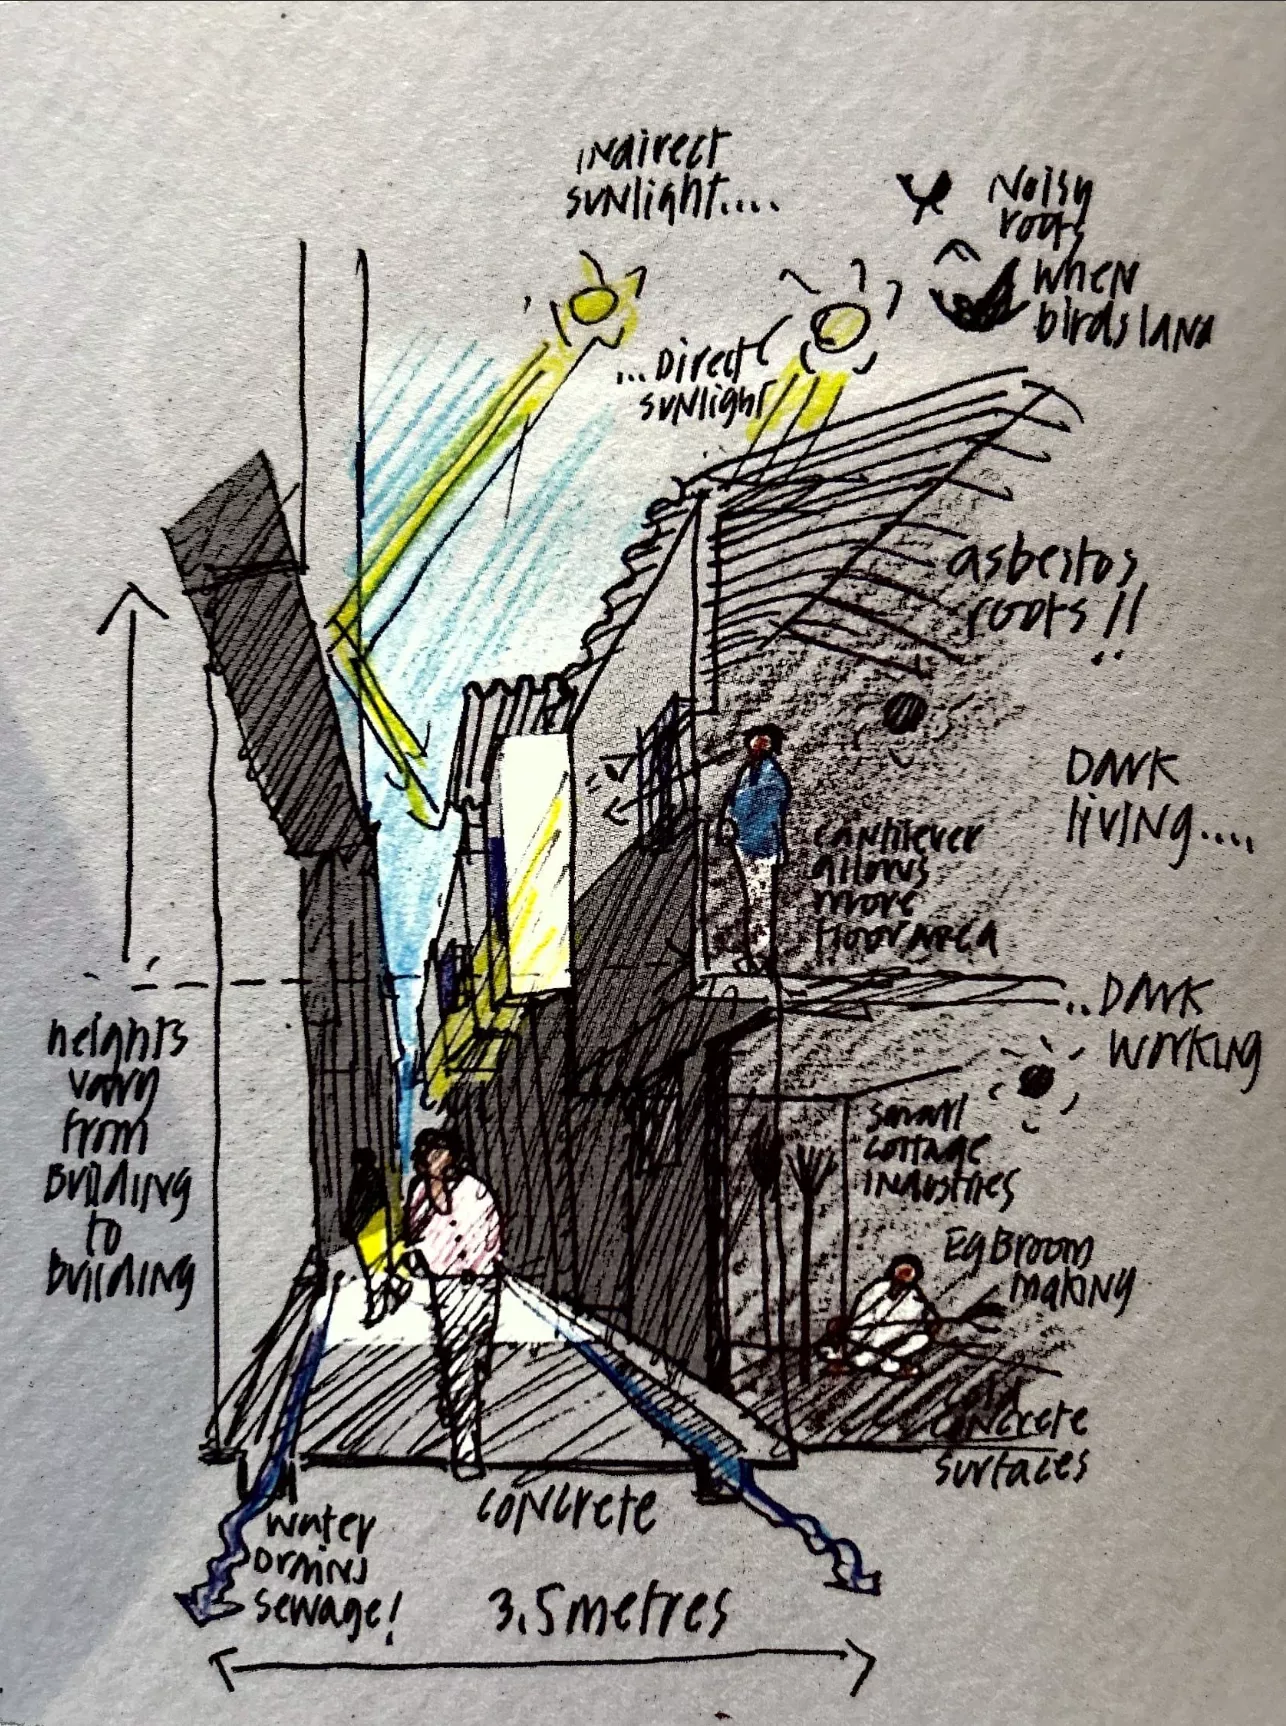 INdirect
SUNlight....
Noisy
roofs
when
birds land
...Direct
SUNlight
asbestos
roofs!!
DARK
living....
cantilever
allows
more
floor area
..DARK
WORKING
heights
vary
from
Building
to
Building
small
cottage
industries
Eg Broom
making
concrete
surfaces
concrete
water
Drains
sewage!
3.5 metres